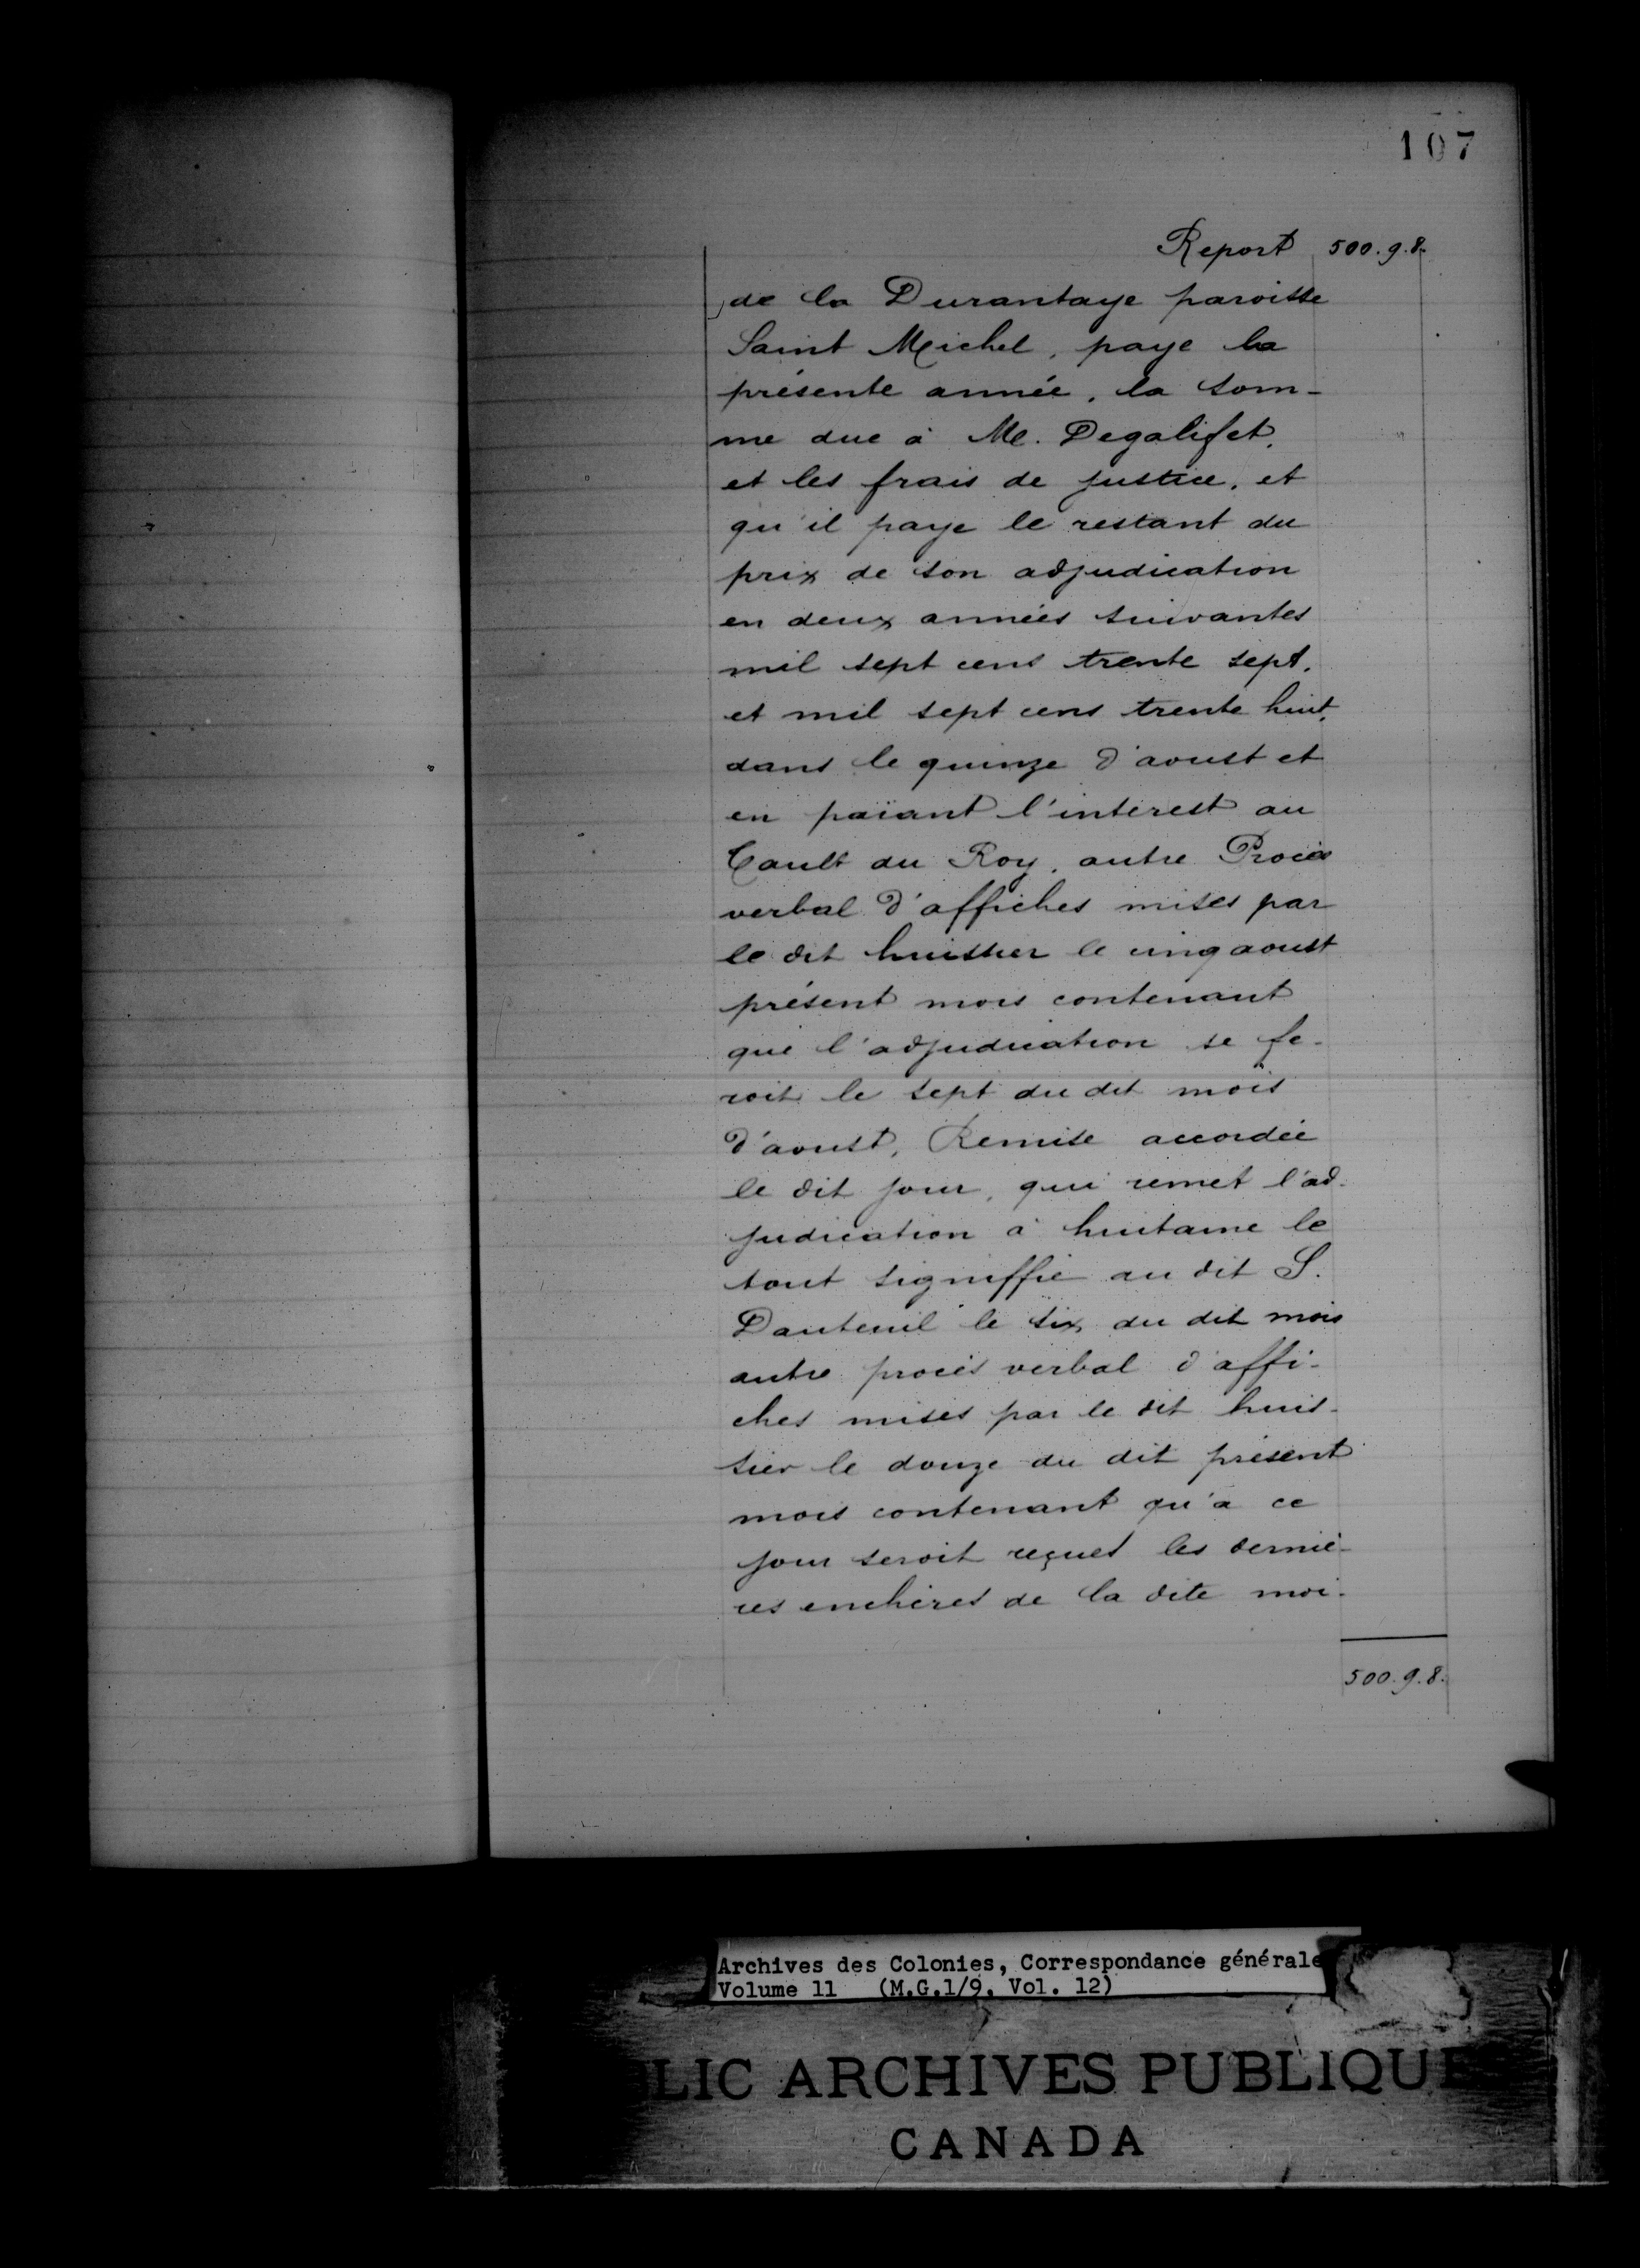 107
Report 500.9.8.
de la Durantaye paroisse
Saint Michel, paye la
présente année, la som-
me due à M. Degalifet,
et les frais de justice, et
qu'il paye le restant du
prix de son adjudication
en deux années suivantes
mil sept cens trente sept,
et mil sept cens trente huit,
dans le quinze d'aoust et
en païant l'interest au
Cault du Roy, autre Procès
verbal d'affiches mises par
le dit huissier le cinq aoust
présent mois contenant
que l'adjudication se fe-
roit le sept du dit mois
d'aoust, Remise accordée
le dit jour, qui remet l'ad-
judication à huitaine le
tout signiffié au dit S.
Dauteuil le six du dit mois
autre procès verbal d'affi-
ches mises par le dit huis-
sier le douze du dit présent
mois contenant qu'a ce
jour seroit reçues les derniè-
res enchères de la dite moi-
500.9.8.
Archives des Colonies, Correspondance générale
Volume 11 (M.G.1/9, Vol. 12)
LIC ARCHIVES PUBLIQUE
CANADA